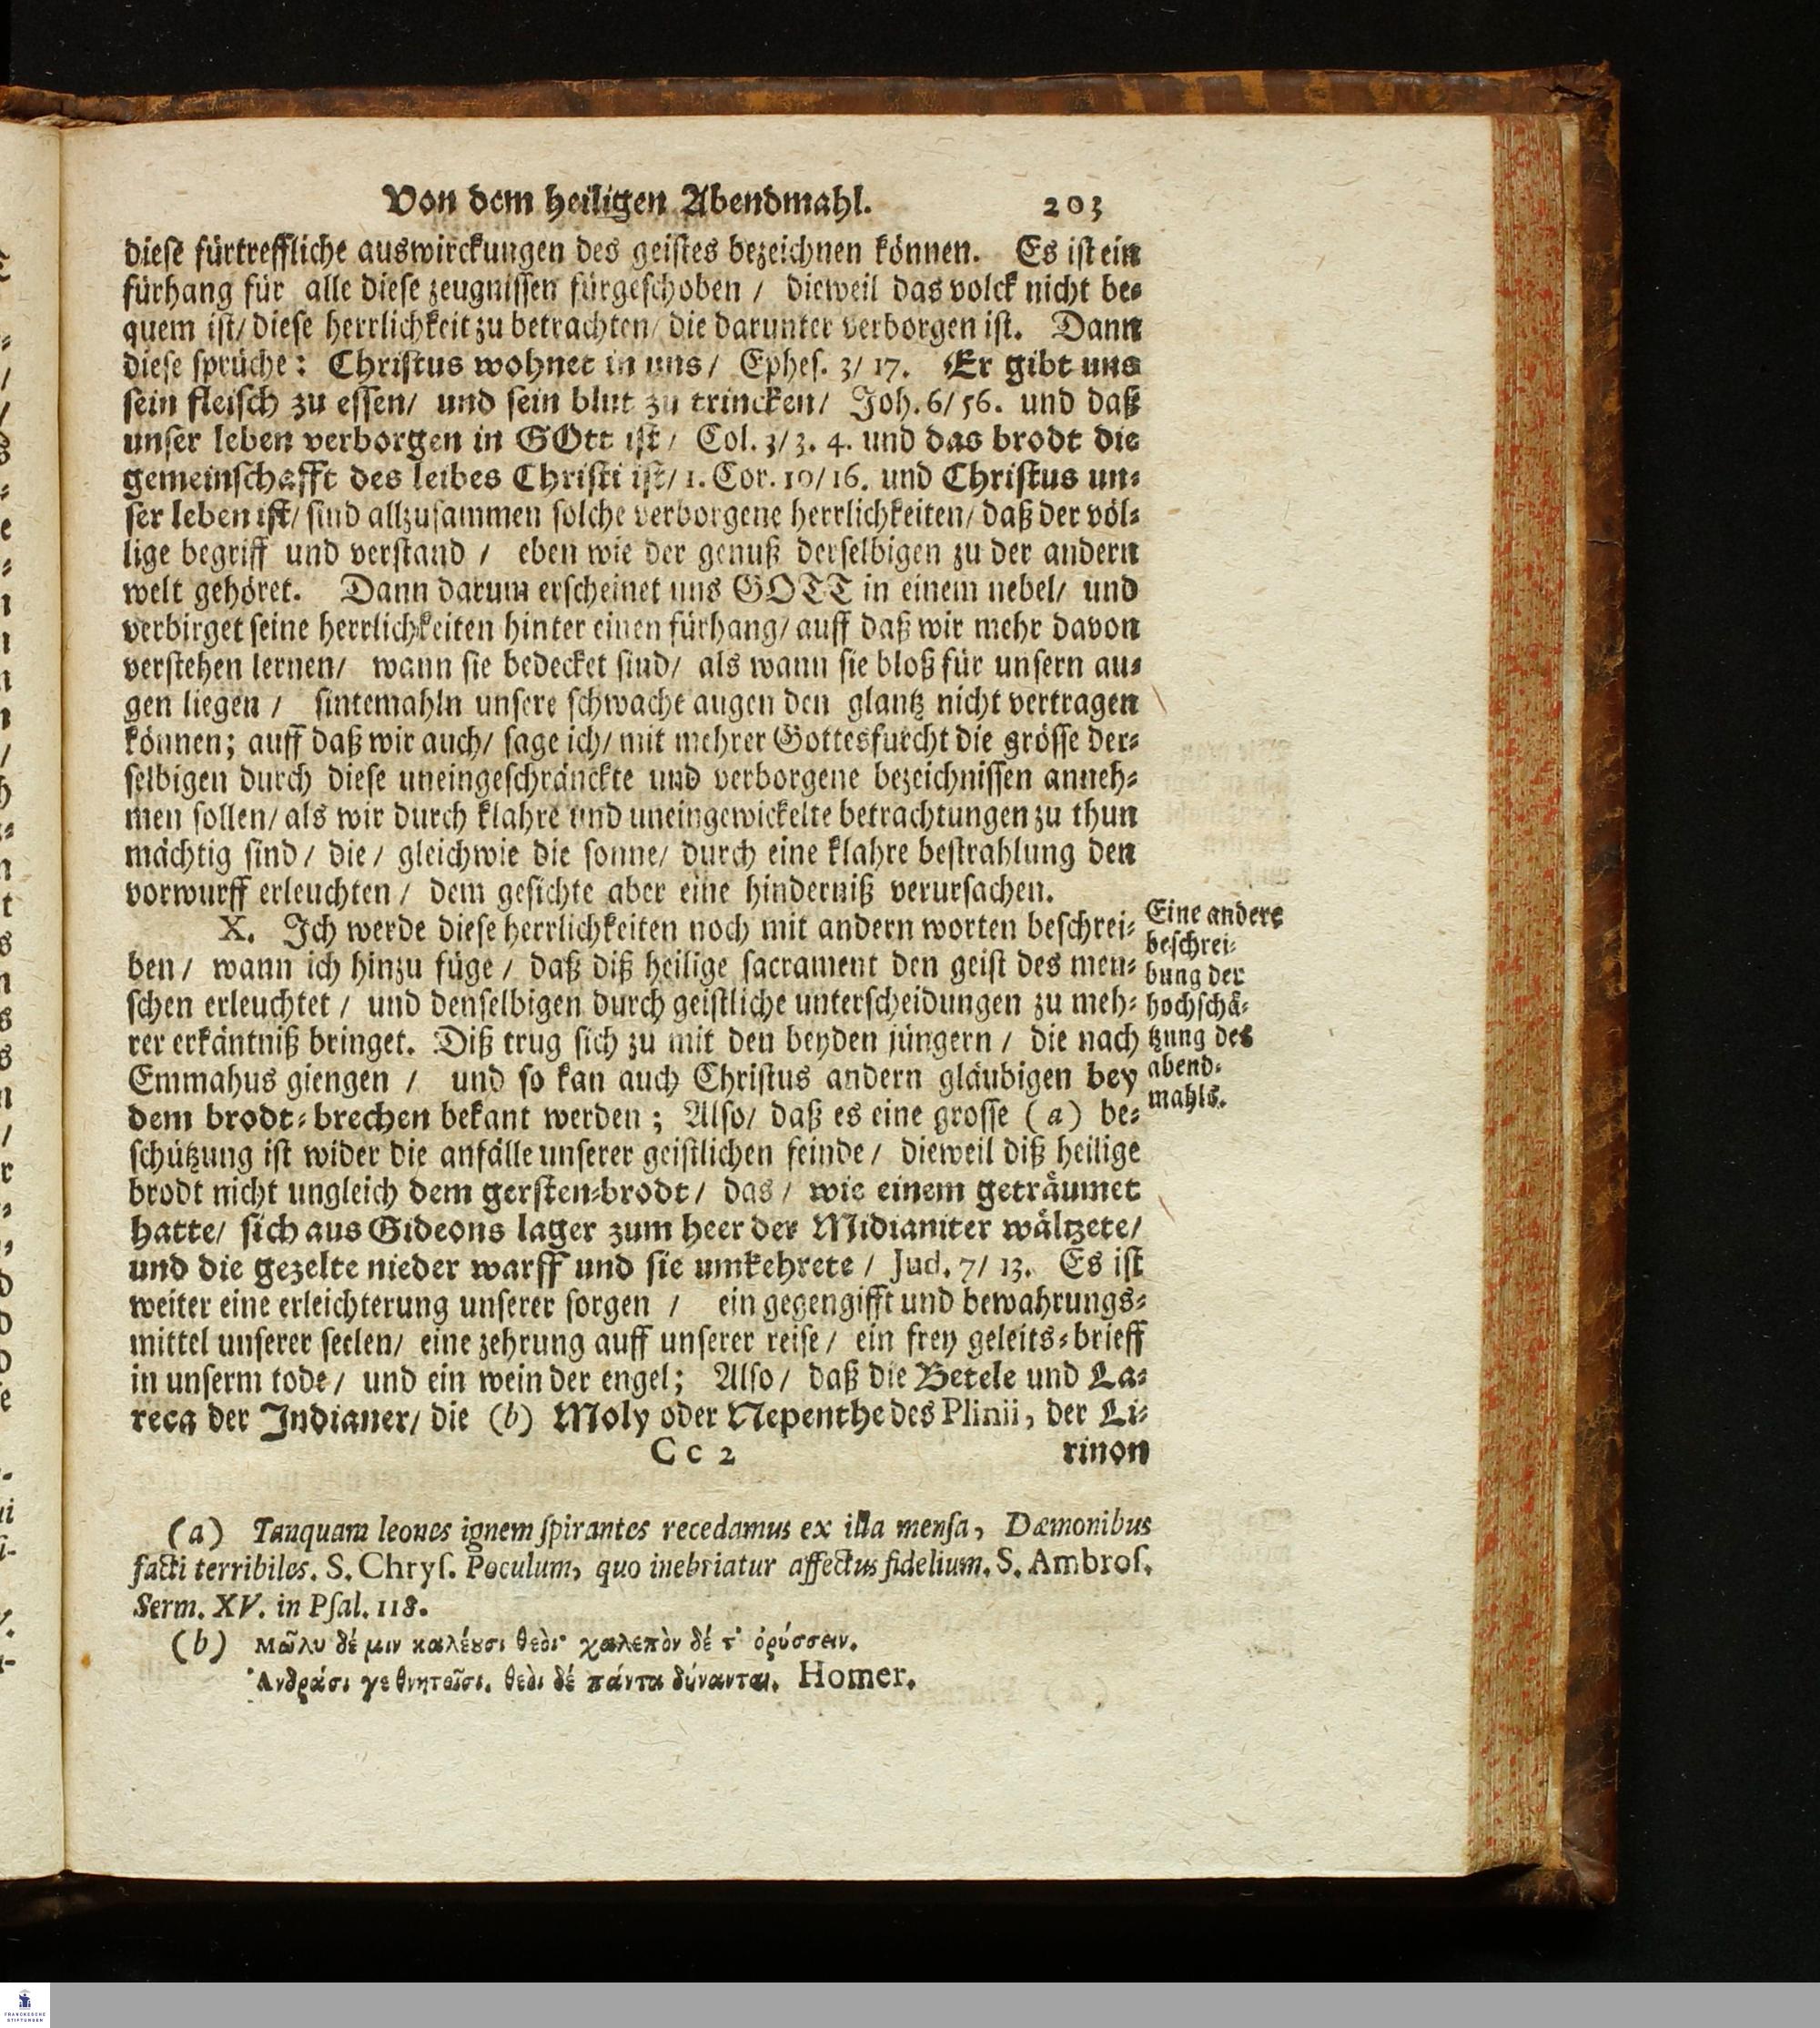 Von dem heiligen Abendmahl. 203
diese fürtreffliche auswirckungen des geistes bezeichnen können. Es ist ein
fürhang für alle diese zeugnissen fürgeschoben / dieweil das volck nicht be-
quem ist/ diese herrlichkeit zu betrachten/ die darunter verborgen ist. Dann
diese sprüche: Christus wohnet in uns/ Ephes. 3/ 17. Er gibt uns
sein fleisch zu essen/ und sein blut zu trincken/ Joh. 6/ 56. und daß
unser leben verborgen in GOtt ist/ Col. 3/ 3. 4. und das brodt die
gemeinschafft des leibes Christi ist/ 1. Cor. 10/ 16. und Christus un-
ser leben ist/ sind allzusammen solche verborgene herrlichkeiten/ daß der völ-
lige begriff und verstand / eben wie der genuß derselbigen zu der andern
welt gehöret. Dann darum erscheinet uns GOTT in einem nebel/ und
verbirget seine herrlichkeiten hinter einen fürhang/ auff daß wir mehr davon
verstehen lernen/ wann sie bedecket sind/ als wann sie bloß für unsern au-
gen liegen / sintemahln unsere schwache augen den glantz nicht vertragen
können; auff daß wir auch/ sage ich/ mit mehrer Gottesfurcht die grösse der-
selbigen durch diese uneingeschränckte und verborgene bezeichnissen anneh-
men sollen/ als wir durch klahre und uneingewickelte betrachtungen zu thun
mächtig sind/ die/ gleichwie die sonne/ durch eine klahre bestrahlung den
vorwurff erleuchten / dem gesichte aber eine hinderniß verursachen.
X. Ich werde diese herrlichkeiten noch mit andern worten beschrei-
ben / wann ich hinzu füge / daß diß heilige sacrament den geist des men-
schen erleuchtet / und denselbigen durch geistliche unterscheidungen zu meh-
rer erkäntniß bringet. Diß trug sich zu mit den beyden jüngern / die nach
Emmahus giengen / und so kan auch Christus andern gläubigen bey
dem brodt-brechen bekant werden; Also/ daß es eine grosse (a) be-
schützung ist wider die anfälle unserer geistlichen feinde / dieweil diß heilige
brodt nicht ungleich dem gersten-brodt/ das/ wie einem geträumet
hatte/ sich aus Gideons lager zum heer der Midianiter wältzete/
und die gezelte nieder warff und sie umkehrete / Jud. 7/ 13. Es ist
weiter eine erleichterung unserer sorgen / ein gegengifft und bewahrungs-
mittel unserer seelen/ eine zehrung auff unserer reise / ein frey geleits-brieff
in unserm tode / und ein wein der engel; Also / daß die Betele und La-
reca der Indianer/ die (b) Moly oder Nepenthe des Plinii, der Li-
Cc 2 rinon
Eine andere
beschrei-
bung der
hochschä-
tzung des
abend-
mahls.
(a) Tanquam leones ignem spirantes recedamus ex illa mensa, Dæmonibus
facti terribiles. S. Chrys. Poculum, quo inebriatur affectus fidelium. S. Ambros.
Serm. XV. in Psal. 118.
(b) Μῶλυ δέ μιν καλέουσι θεοὶ· χαλεπὸν δέ τ' ὀρύσσειν.
Ἀνδράσι γε θνητοῖσι. θεοὶ δέ πάντα δύνανται. Homer.
FRANCKESCHE
STIFTUNGEN